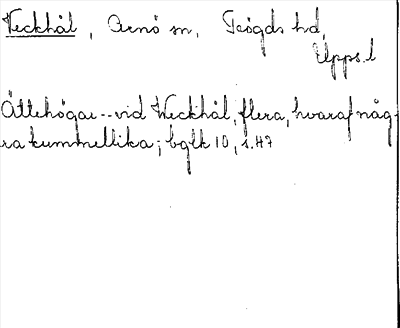 Veckhål, Arnö sn, Trögds hd,
Upps. l
Ättehögar -- vid Weckhål, flera, hvaraf någ-
ra kummellika; bglk 10, s. 47